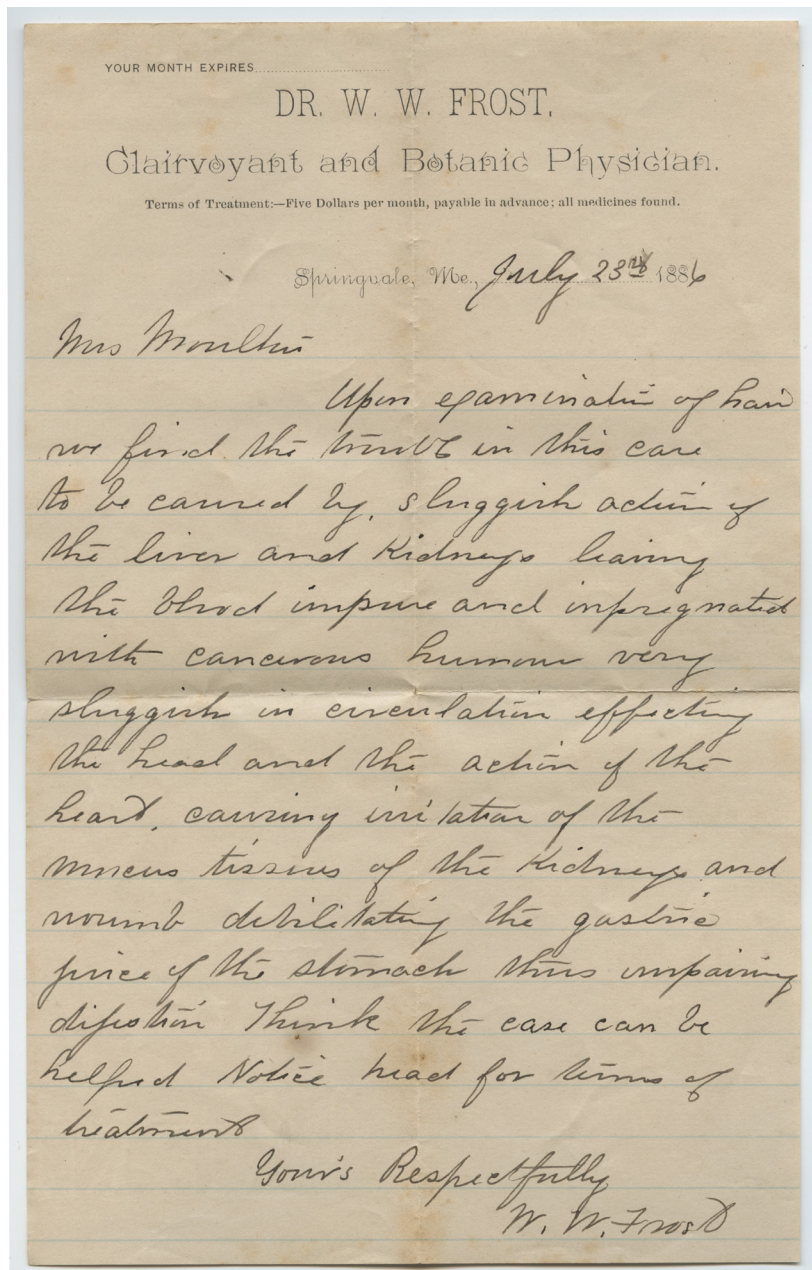 YOUR MONTH EXPIRES
DR. W. W. FROST,
Clairvoyant and Botanic Physician.
Terms of Treatment:—Five Dollars per month, payable in advance; all medicines found.
Springvale, Me., July 23rd 1886
Mrs Moulton
Upon examination of hair
we find the trouble in this case
to be caused by, sluggish action of
the liver and Kidneys leaving
the blood impure and inpregnated
with cancerous humour very
sluggish in circulation effecting
the head and the action of the
heart, causing irritation of the
mucus tissues of the Kidneys and
woumb debilitating the gastric
juice of the stomach thus impairing
digestion Think the case can be
helped Notice head for terms of
treatment
Your's Respectfully
W. W. Frost